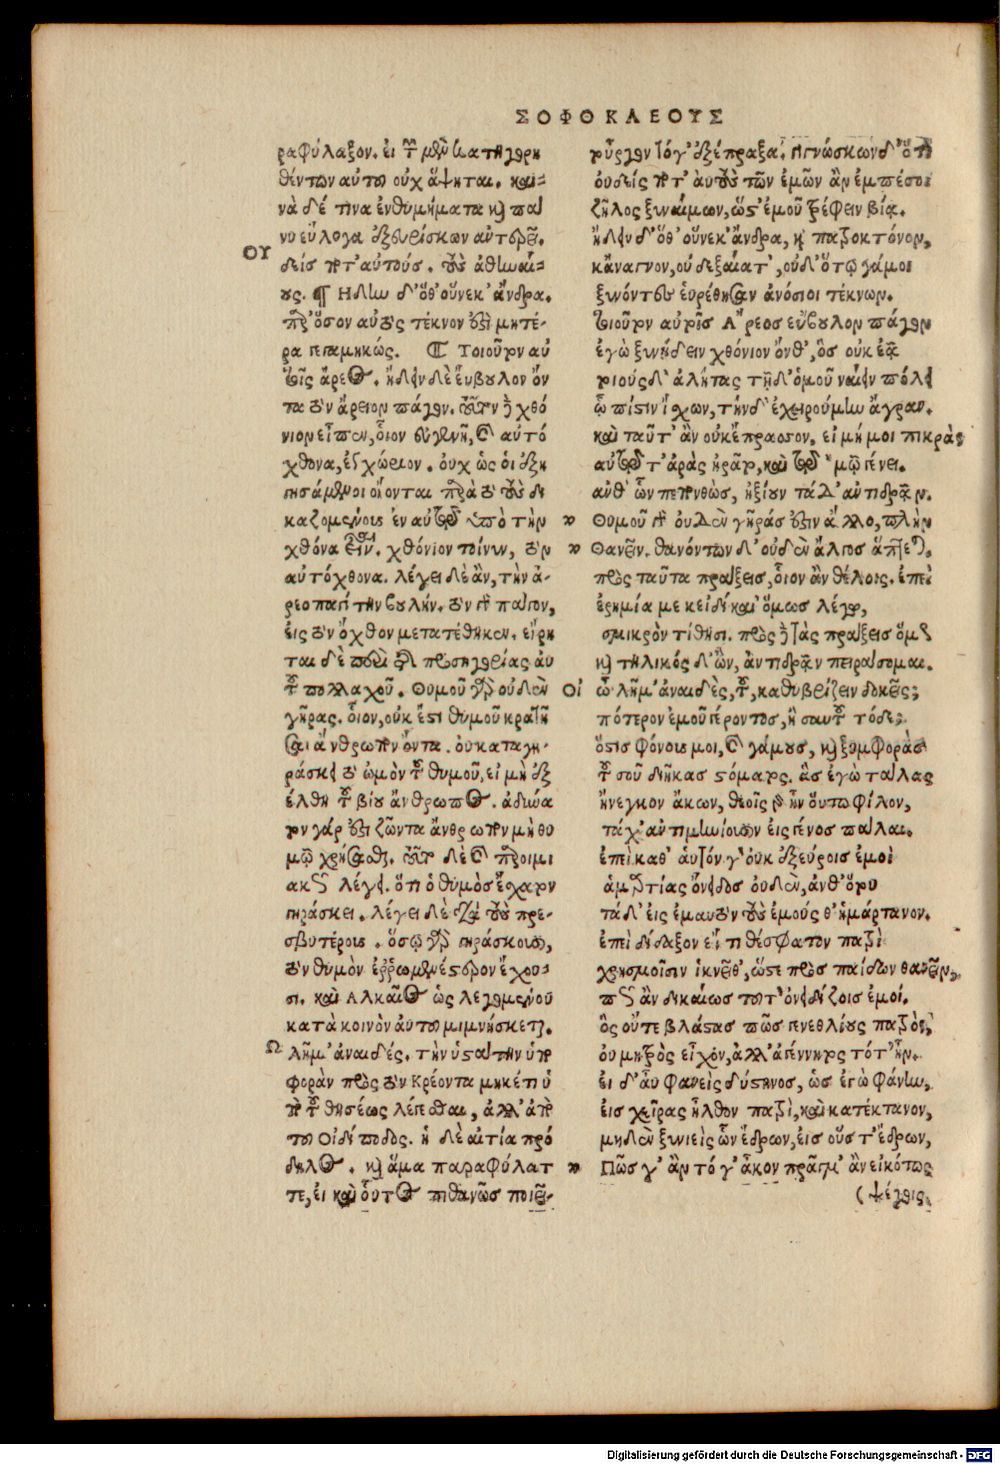 ΣΟΦΟΚΛΕΟΥΣ
ραφύλαξον. εἰ τῶν μὲν κατηγορη
θέντων αὐτῷ οὐχ ἅψηται. και-
νὰ δέ τινα ἐνθυμήματα καὶ πάνυ
νυ εὔλογα ἐξευρίσκων ἀντερεῖ.
ΟΥ
δείς ποτ' αὐτούς. τοὺς ἀθηναί-
ους. ¶ Ηιδειν δ' ὁθούνεκ' ἄνδρα.
παρ' ὅσον αὐτὸς τέκνον ἐπὶ μητέ-
ρα γεγαμηκώς. ¶ Τοιοῦτον αὐ
τοῖς ἄρεος. ᾔδειν δὲ εὔβουλον ὄν
τα τὸν ἄρειον πάγον.
νιον εἶπεν, οἷον εὐγενῆ, καὶ αὐτό
χθονα, ἐγχώριον. οὐχ ὡς οἱ ἐξη
γησάμενοι οἴονται παρὰ τὸ τοὺς δι
καζομένους ἐν αὐτῷ ὑπὸ τὴν
χθόνα εἶναι. χθόνιον τοίνυν, τὸν
αὐτόχθονα. λέγει δὲ ἂν, τὴν ἀ-
ρεοπαγίτην βουλήν. τὸν γὰρ πάγον,
εἰς τὸν ὄχθον μετατέθηκεν. εἴρη
ται δὲ περὶ τῆς προσηγορίας αὐ
τοῦ πολλαχοῦ. Θυμοῦ γὰρ οὐδὲν
γῆρας. οἷον, οὐκ ἔστι θυμοῦ κρατῆ
σαι ἄνθρωπον ὄντα. οὐ καταγη-
ράσκει τὸ ὠμὸν τοῦ θυμοῦ, εἰ μὴ ἐξ
έλθῃ τοῦ βίου ἄνθρωπος. ἀδύνα
τον γάρ ἐστι ζῶντα ἄνθρωπον μὴ θυ
μῷ χρήσασθαι. τοῦτο δὲ καὶ παροιμι
ακῶς λέγει. ὅτι ὁ θυμὸς ἔσχατον
γηράσκει. λέγει δὲ διὰ τοὺς πρε-
σβυτέρους. ὅσῳ γὰρ γηράσκουσι,
τὸν θυμὸν ἐρρωμενέστερον ἔχου-
σι. καὶ Αλκαῖος ὡς λεγομένου
κατὰ κοινὸν αὐτοῦ μιμνήσκεται.
Ω
λῆμ' ἀναιδές. τὴν ὑστάτην ὑπο
φορὰν πρὸς τὸν Κρέοντα μηκέτι ὑ
πὸ τοῦ θησέως λέγεσθαι, ἀλλ' ἀπὸ
τοῦ Οἰδίποδος. ἡ δὲ αἰτία πρό
δηλος. καὶ ἅμα παραφύλατ
τε, εἰ καὶ οὗτος πιθανῶς ποιεῖ-
τοὔργον τόδ' ἐξέπραξα. γιγνώσκων δ' ὅτι
οὐδείς ποτ' αὐτοὺς τῶν ἐμῶν ἂν ἐμπέσοι
ζῆλος ξυναίμων, ὥστ' ἐμοῦ τρέφειν βίᾳ.
ᾔδειν δ' ὁθούνεκ' ἄνδρα, καὶ πατροκτόνον,
κἄναγνον, οὐ δεξαίατ', οὐδ' ὅτῳ γάμοι
ξυνόντες εὑρέθησαν ἀνόσιοι τέκνων.
τοιοῦτον αὐτοῖς Ἄρεος εὔβουλον πάγον
ἐγὼ ξυνῄδειν χθόνιον ὄνθ', ὃς οὐκ ἐᾷ
τοιούσδ' ἀλήτας τῇδ' ὁμοῦ ναίειν πόλει
ᾧ πίστιν ἴσχων, τήνδ' ἐχειρούμην ἄγραν.
καὶ ταῦτ' ἂν οὐκ ἔπρασσον, εἰ μή μοι πικρὰς
αὐτῷ τ' ἀρὰς ἠρᾶτο, καὶ τῷ 'μῷ γένει.
ἀνθ' ὧν πεπονθὼς, ἠξίουν τάδ' ἀντιδρᾶν.
Θυμοῦ γὰρ οὐδὲν γῆράς ἐστιν ἄλλο, πλὴν
Θανεῖν. θανόντων δ' οὐδὲν ἄλγος ἅπτεται.
πρὸς ταῦτα πράξεις, οἷον ἂν θέλοις. ἐπεὶ
ἐρημία με κεἰ δίκαι' ὅμως λέγω,
σμικρὸν τίθησι. πρὸς δὲ τὰς πράξεις ὅμως
καὶ τηλικόσδ' ὢν, ἀντιδρᾶν πειράσομαι.
ΟΙ ὦ λῆμ' ἀναιδὲς, τοῦ, καθυβρίζειν δοκεῖς;
πότερον ἐμοῦ γέροντος, ἢ σαυτοῦ τόδε;
ὅστις φόνους μοι, καὶ γάμους, καὶ ξυμφορὰς
τοῦ σοῦ διῆκας στόματος. ἃς ἐγὼ τάλας
ἤνεγκον ἄκων, θεοῖς γὰρ ἦν οὕτω φίλον,
τάχ' ἄν τι μηνίουσιν εἰς γένος πάλαι.
ἐπεὶ καθ' αὑτόν γ' οὐκ ἐξεύροις ἐμοὶ
ἁμαρτίας ὄνειδος οὐδὲν, ἀνθ' ὅτου
τάδ' εἰς ἐμαυτὸν τοὺς ἐμούς θ' ἡμάρτανον.
ἐπεὶ δίδαξον εἴ τι θέσφατον πατρὶ
χρησμοῖσιν ἱκνεῖθ', ὥστε πρὸς παίδων θανεῖν,
πῶς ἂν δικαίως τοῦτ' ὀνειδίζοις ἐμοί.
ὃς οὔτε βλάστας πῶς γενεθλίους πατρὸς,
οὐ μητρὸς εἶχον, ἀλλ' ἀγέννητος τότ' ἦν.
εἰ δ' αὖ φανεὶς δύστηνος, ὡς ἐγὼ φάνην,
εἰς χεῖρας ἦλθον πατρὶ, καὶ κατέκτανον,
μηδὲν ξυνιεὶς ὧν ἔδρων, εἰς οὕς τ' ἔδρων,
Πῶς γ' ἂν τό γ' ἆκον πρᾶγμ' ἂν εἰκότως
(ψέγοις.